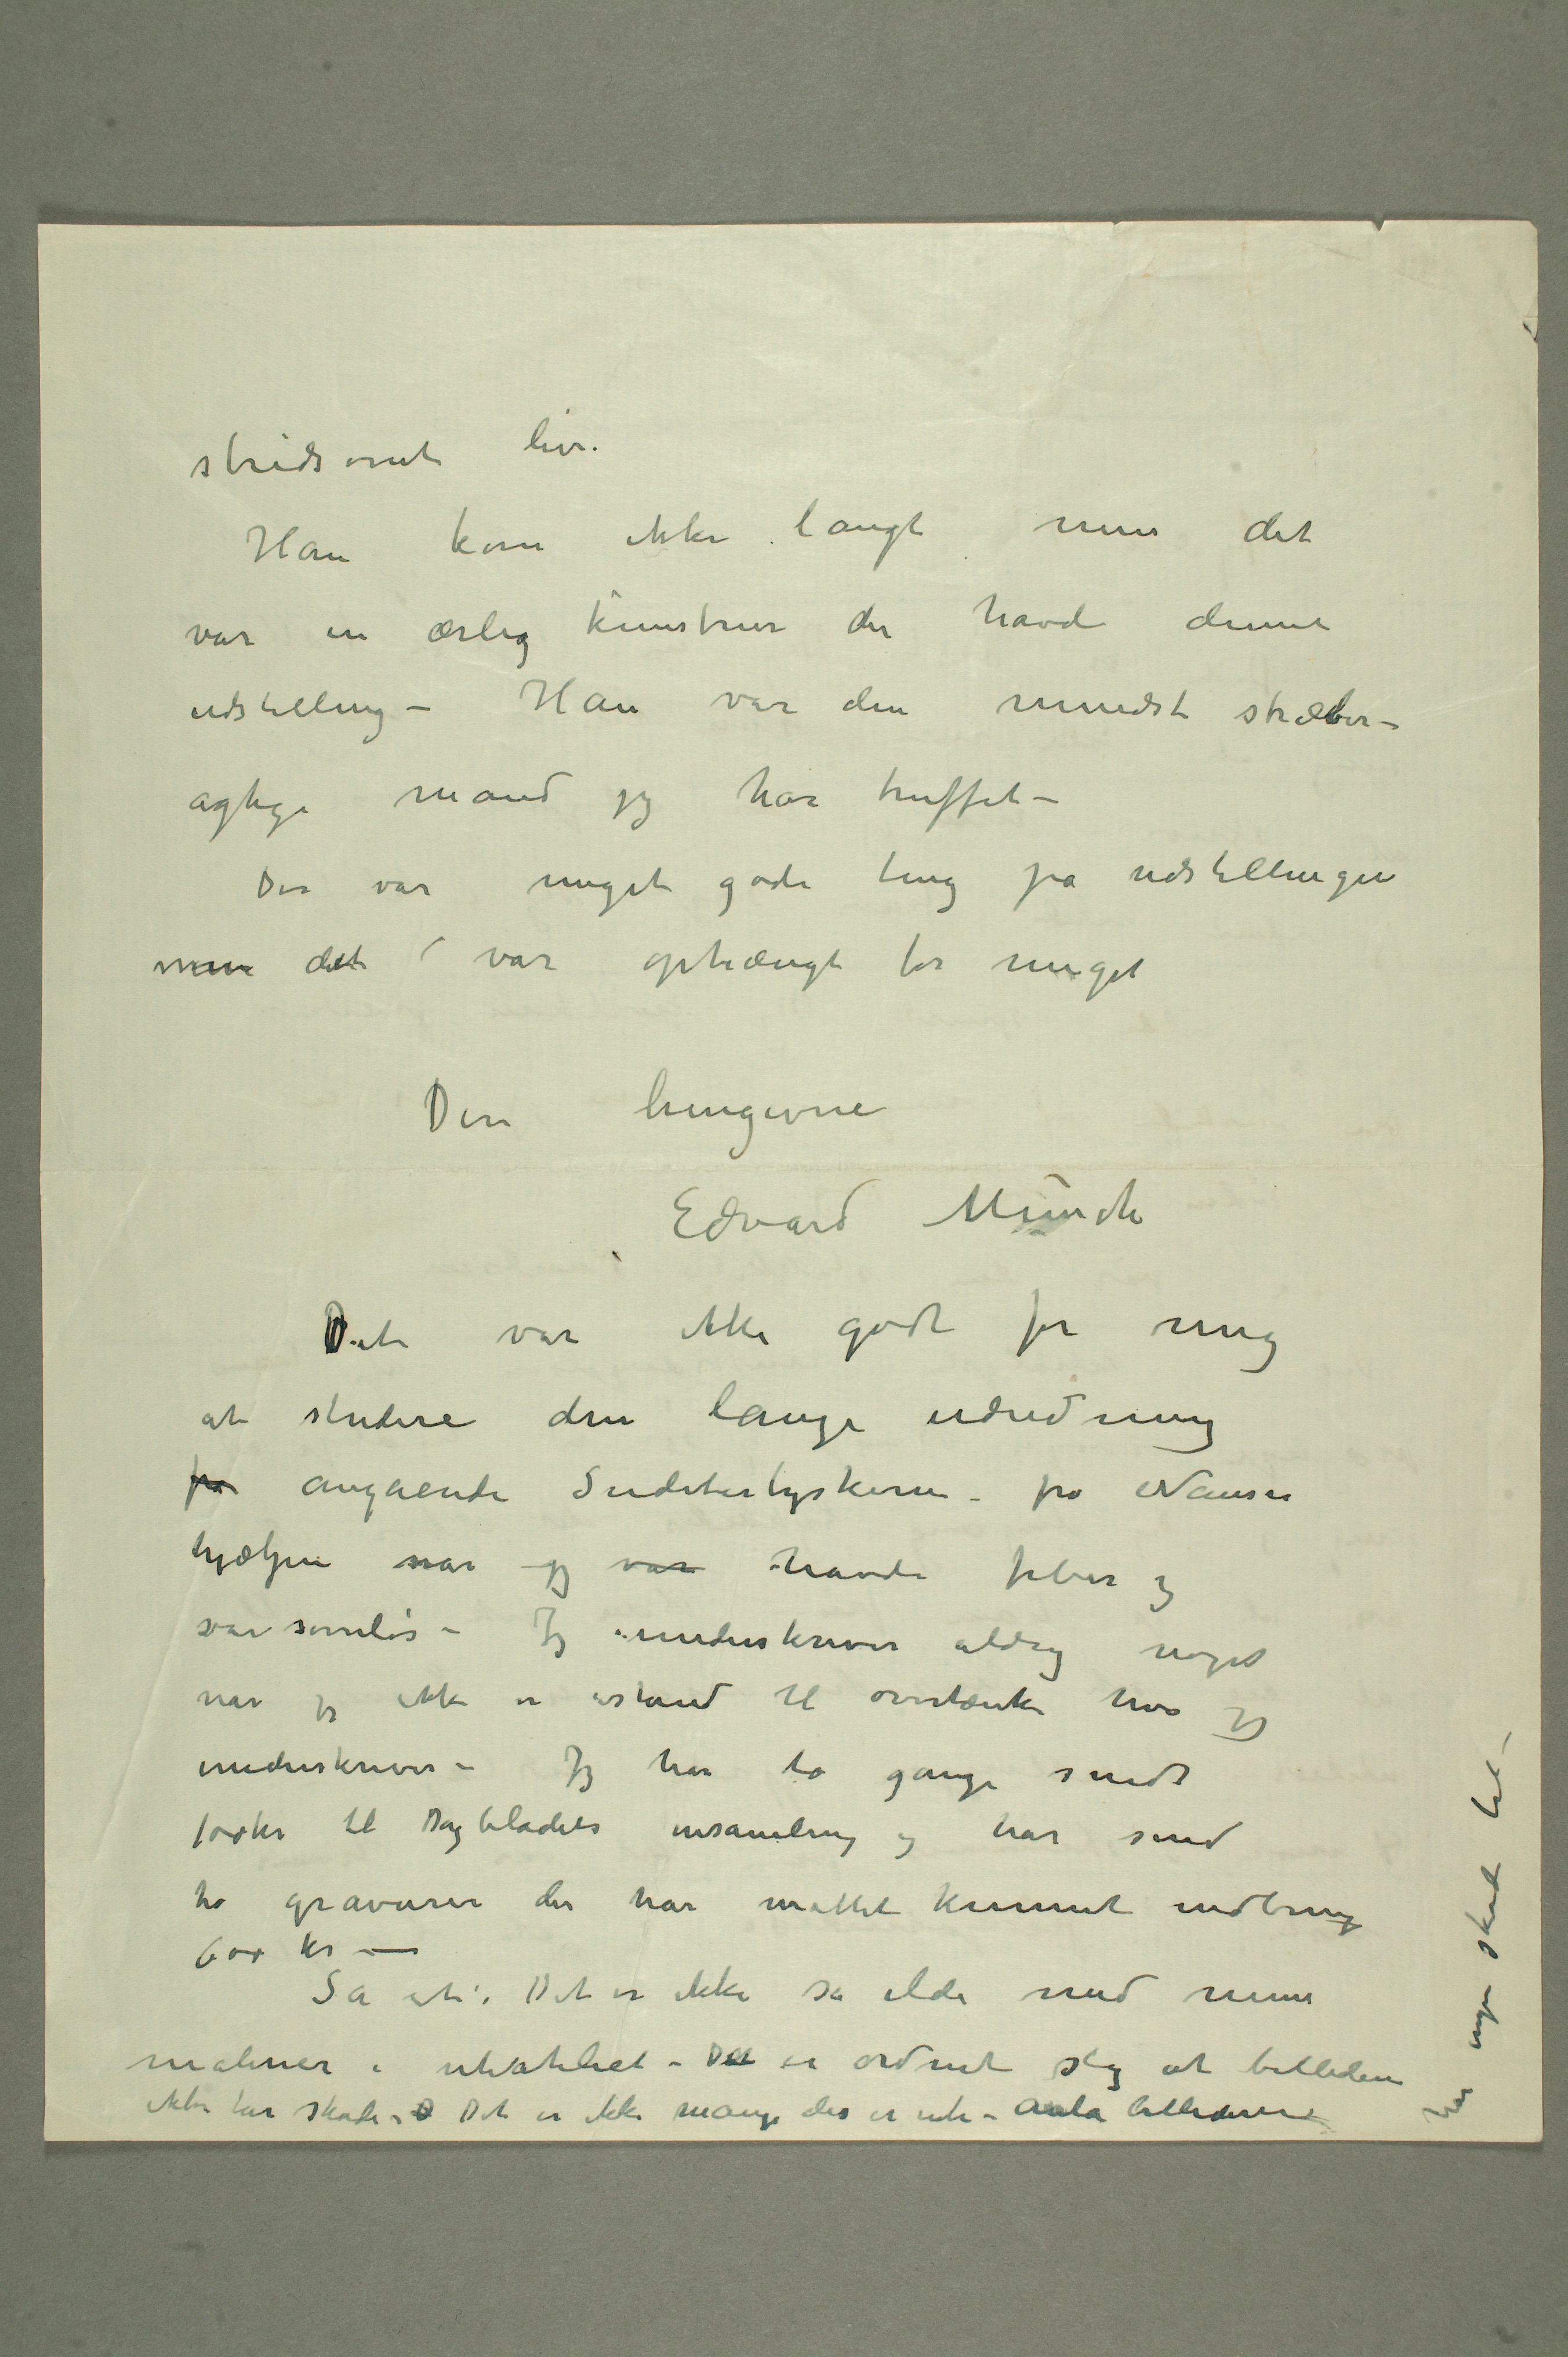 stridsomt liv.
Han kom ikke langt men det
var en ærlig kunstner der havde denne
udstilling – Han var den mindst stræber-
agtige mand jeg har truffet –
Der var meget gode ting på udstillingen
men det var ophængt for meget
Din hengivne
Edvard Munch
Det var ikke godt for mig
at studere den lange udredning
fra angående Sudetertyskerne – fra Nansen
hjælpen når jeg var havde feber og
var søvnløs – Jeg underskriver aldrig noget
når jeg ikke er istand til overtænke hva jeg
underskriver – Jeg har to gange sendt
100 kr til Dagbladets insamling og har send
to gravurer der har måttet kunnet indbringe
600 kr –
Så at: Det er ikke så ilde med mine
malerier i uteatelieet – Det er ordnet slig at billedene
ikke tar skade – D Det er ikke mange der er ute – Aula billederne
har ingen skade tat –